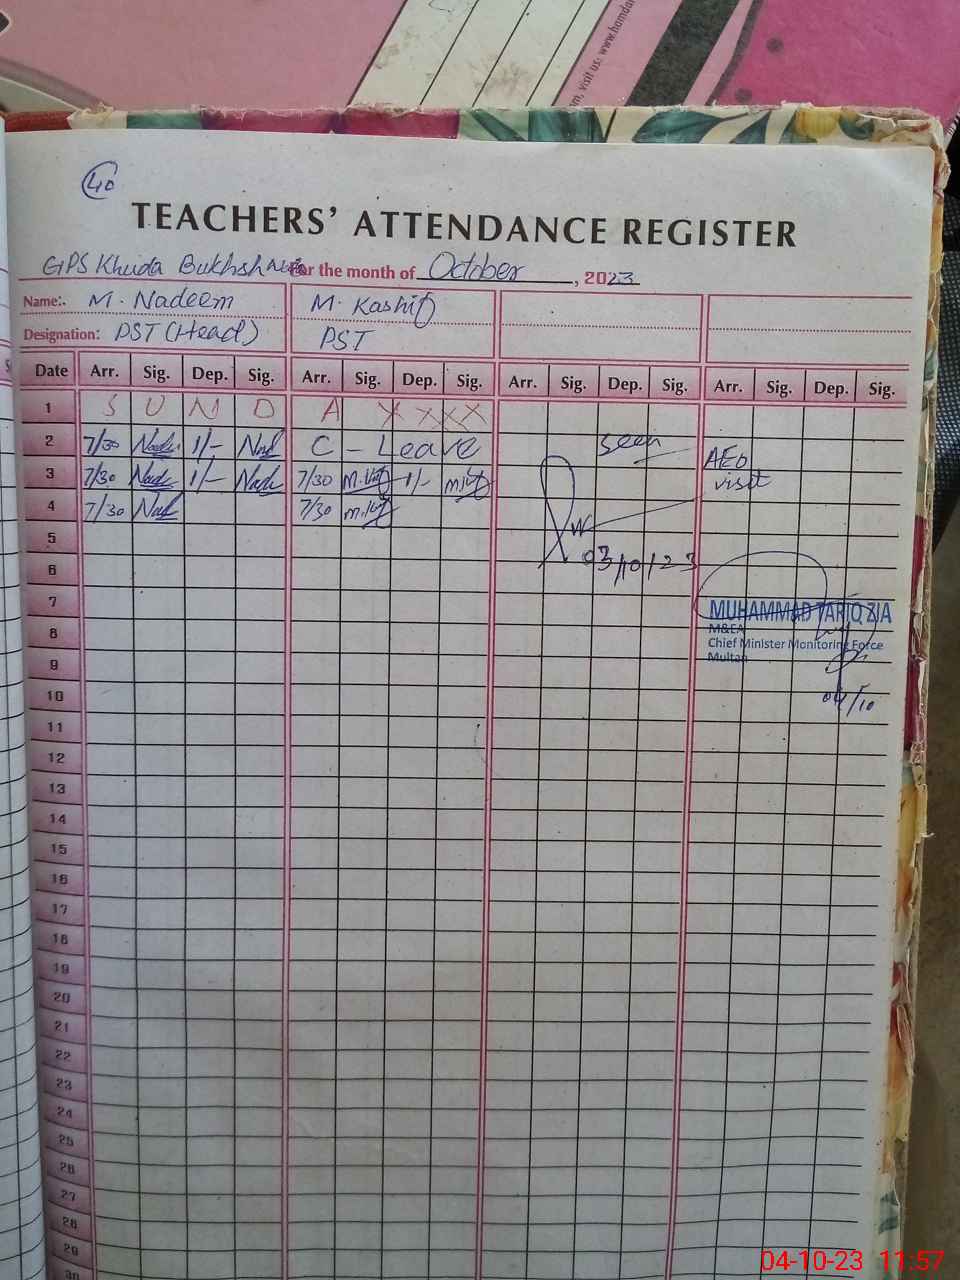 m, visit us: www.hamdar
40
TEACHERS' ATTENDANCE REGISTER
GPS Khuda Bukhsh For the month of October, 2023
Name:. M. Nadeem M. Kashif
Designation: PST (Head) PST
Date Arr. Sig. Dep. Sig. Arr. Sig. Dep. Sig. Arr. Sig. Dep. Sig. Arr. Sig. Dep. Sig.
1 S U N D A X X X X
2 7/30 1/- C - Leave Seen
3 7/30 1/- 7/30 1/- AEO visit
4 7/30 7/30
5
03/10/23
6
7 MUHAMMAD TARIQ ZIA
8 M&EA
Chief Minister Monitoring Force
9 Multan
10 04/10
11
12
13
14
15
16
17
18
19
20
21
22
23
24
25
26
27
28
29
30
04-10-23 11:57